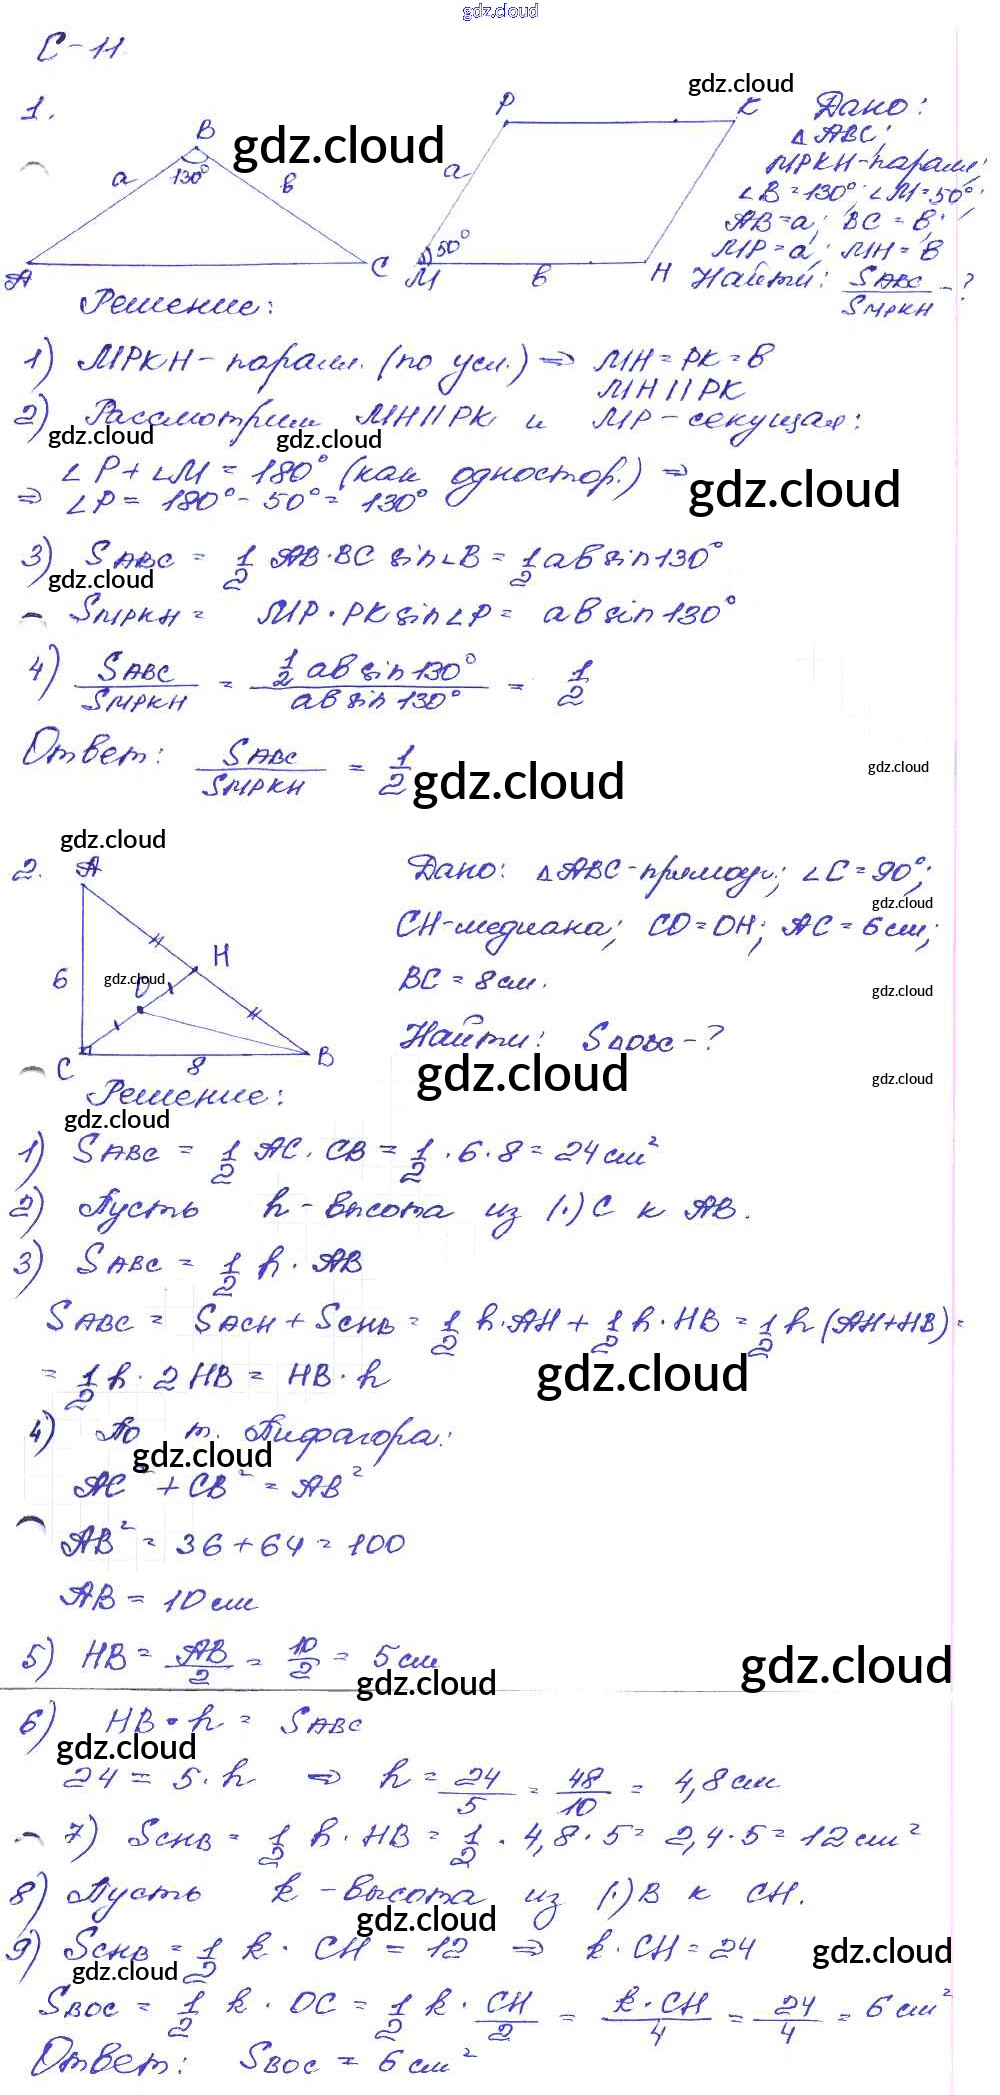 gdz.cloud
С-11
gdz.cloud
1.
B
gdz.cloud
130°
a
b
A
C
P
K
a
50°
M
b
H
Дано:
△ABC;
MPKH-парал.;
∠B=130°; ∠M=50°;
AB=a; BC=b;
MP=a; MH=b
Найти: S ABC / S MPKH - ?
Решение:
1) MPKH-парал. (по усл.) ⇒ MH=PK=b
MH||PK
2) Рассмотрим MH||PK и MP-секущая:
gdz.cloud
gdz.cloud
∠P+∠M=180° (как одностор.) ⇒
⇒ ∠P=180°-50°=130°
gdz.cloud
3) S ABC = 1/2 AB·BC sin∠B = 1/2 ab sin130°
gdz.cloud
S MPKH = MP·PK sin∠P = ab sin130°
4) S ABC / S MPKH = 1/2 ab sin130° / ab sin130° = 1/2
Ответ: S ABC / S MPKH = 1/2
gdz.cloud
gdz.cloud
gdz.cloud
2.
A
H
6
gdz.cloud
O
C
8
B
Дано: △ABC-прямоуг.; ∠C=90°;
gdz.cloud
CH-медиана; CO=OH; AC=6см;
BC=8см.
gdz.cloud
Найти: S△OBC-?
gdz.cloud
gdz.cloud
Решение:
gdz.cloud
1) S ABC = 1/2 AC·CB = 1/2·6·8=24см²
2) Пусть h-высота из (·)C к AB.
3) S ABC = 1/2 h·AB
S ABC = S ACH + S CHB = 1/2 h·AH + 1/2 h·HB = 1/2 h(AH+HB)=
= 1/2 h·2HB = HB·h
gdz.cloud
4) По т. Пифагора:
gdz.cloud
AC²+CB²=AB²
AB²=36+64=100
AB=10см
5) HB = AB/2 = 10/2 = 5см
gdz.cloud
gdz.cloud
6) HB·h = S ABC
gdz.cloud
24=5·h ⇒ h = 24/5 = 48/10 = 4,8см
7) S CHB = 1/2 h·HB = 1/2·4,8·5=2,4·5=12см²
8) Пусть k-высота из (·)B к CH.
gdz.cloud
9) S CHB = 1/2 k·CH = 12 ⇒ k·CH=24
gdz.cloud
gdz.cloud
S BOC = 1/2 k·OC = 1/2 k·CH/2 = k·CH/4 = 24/4 = 6см²
Ответ: S BOC = 6см²